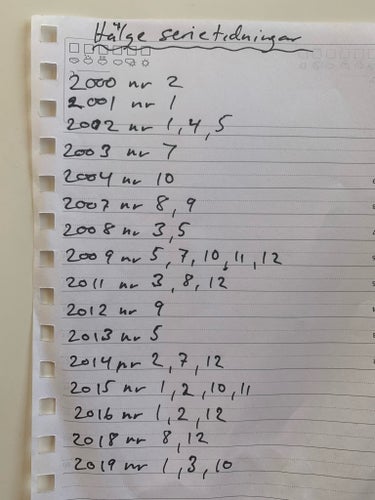 Hälge serietidningar
2000 nr 2
2001 nr 1
2002 nr 1, 4, 5
2003 nr 7
2004 nr 10
2007 nr 8, 9
2008 nr 3, 5
2009 nr 5, 7, 10, 11, 12
2011 nr 3, 8, 12
2012 nr 9
2013 nr 5
2014 nr 2, 7, 12
2015 nr 1, 2, 10, 11
2016 nr 1, 2, 12
2018 nr 8, 12
2019 nr 1, 3, 10